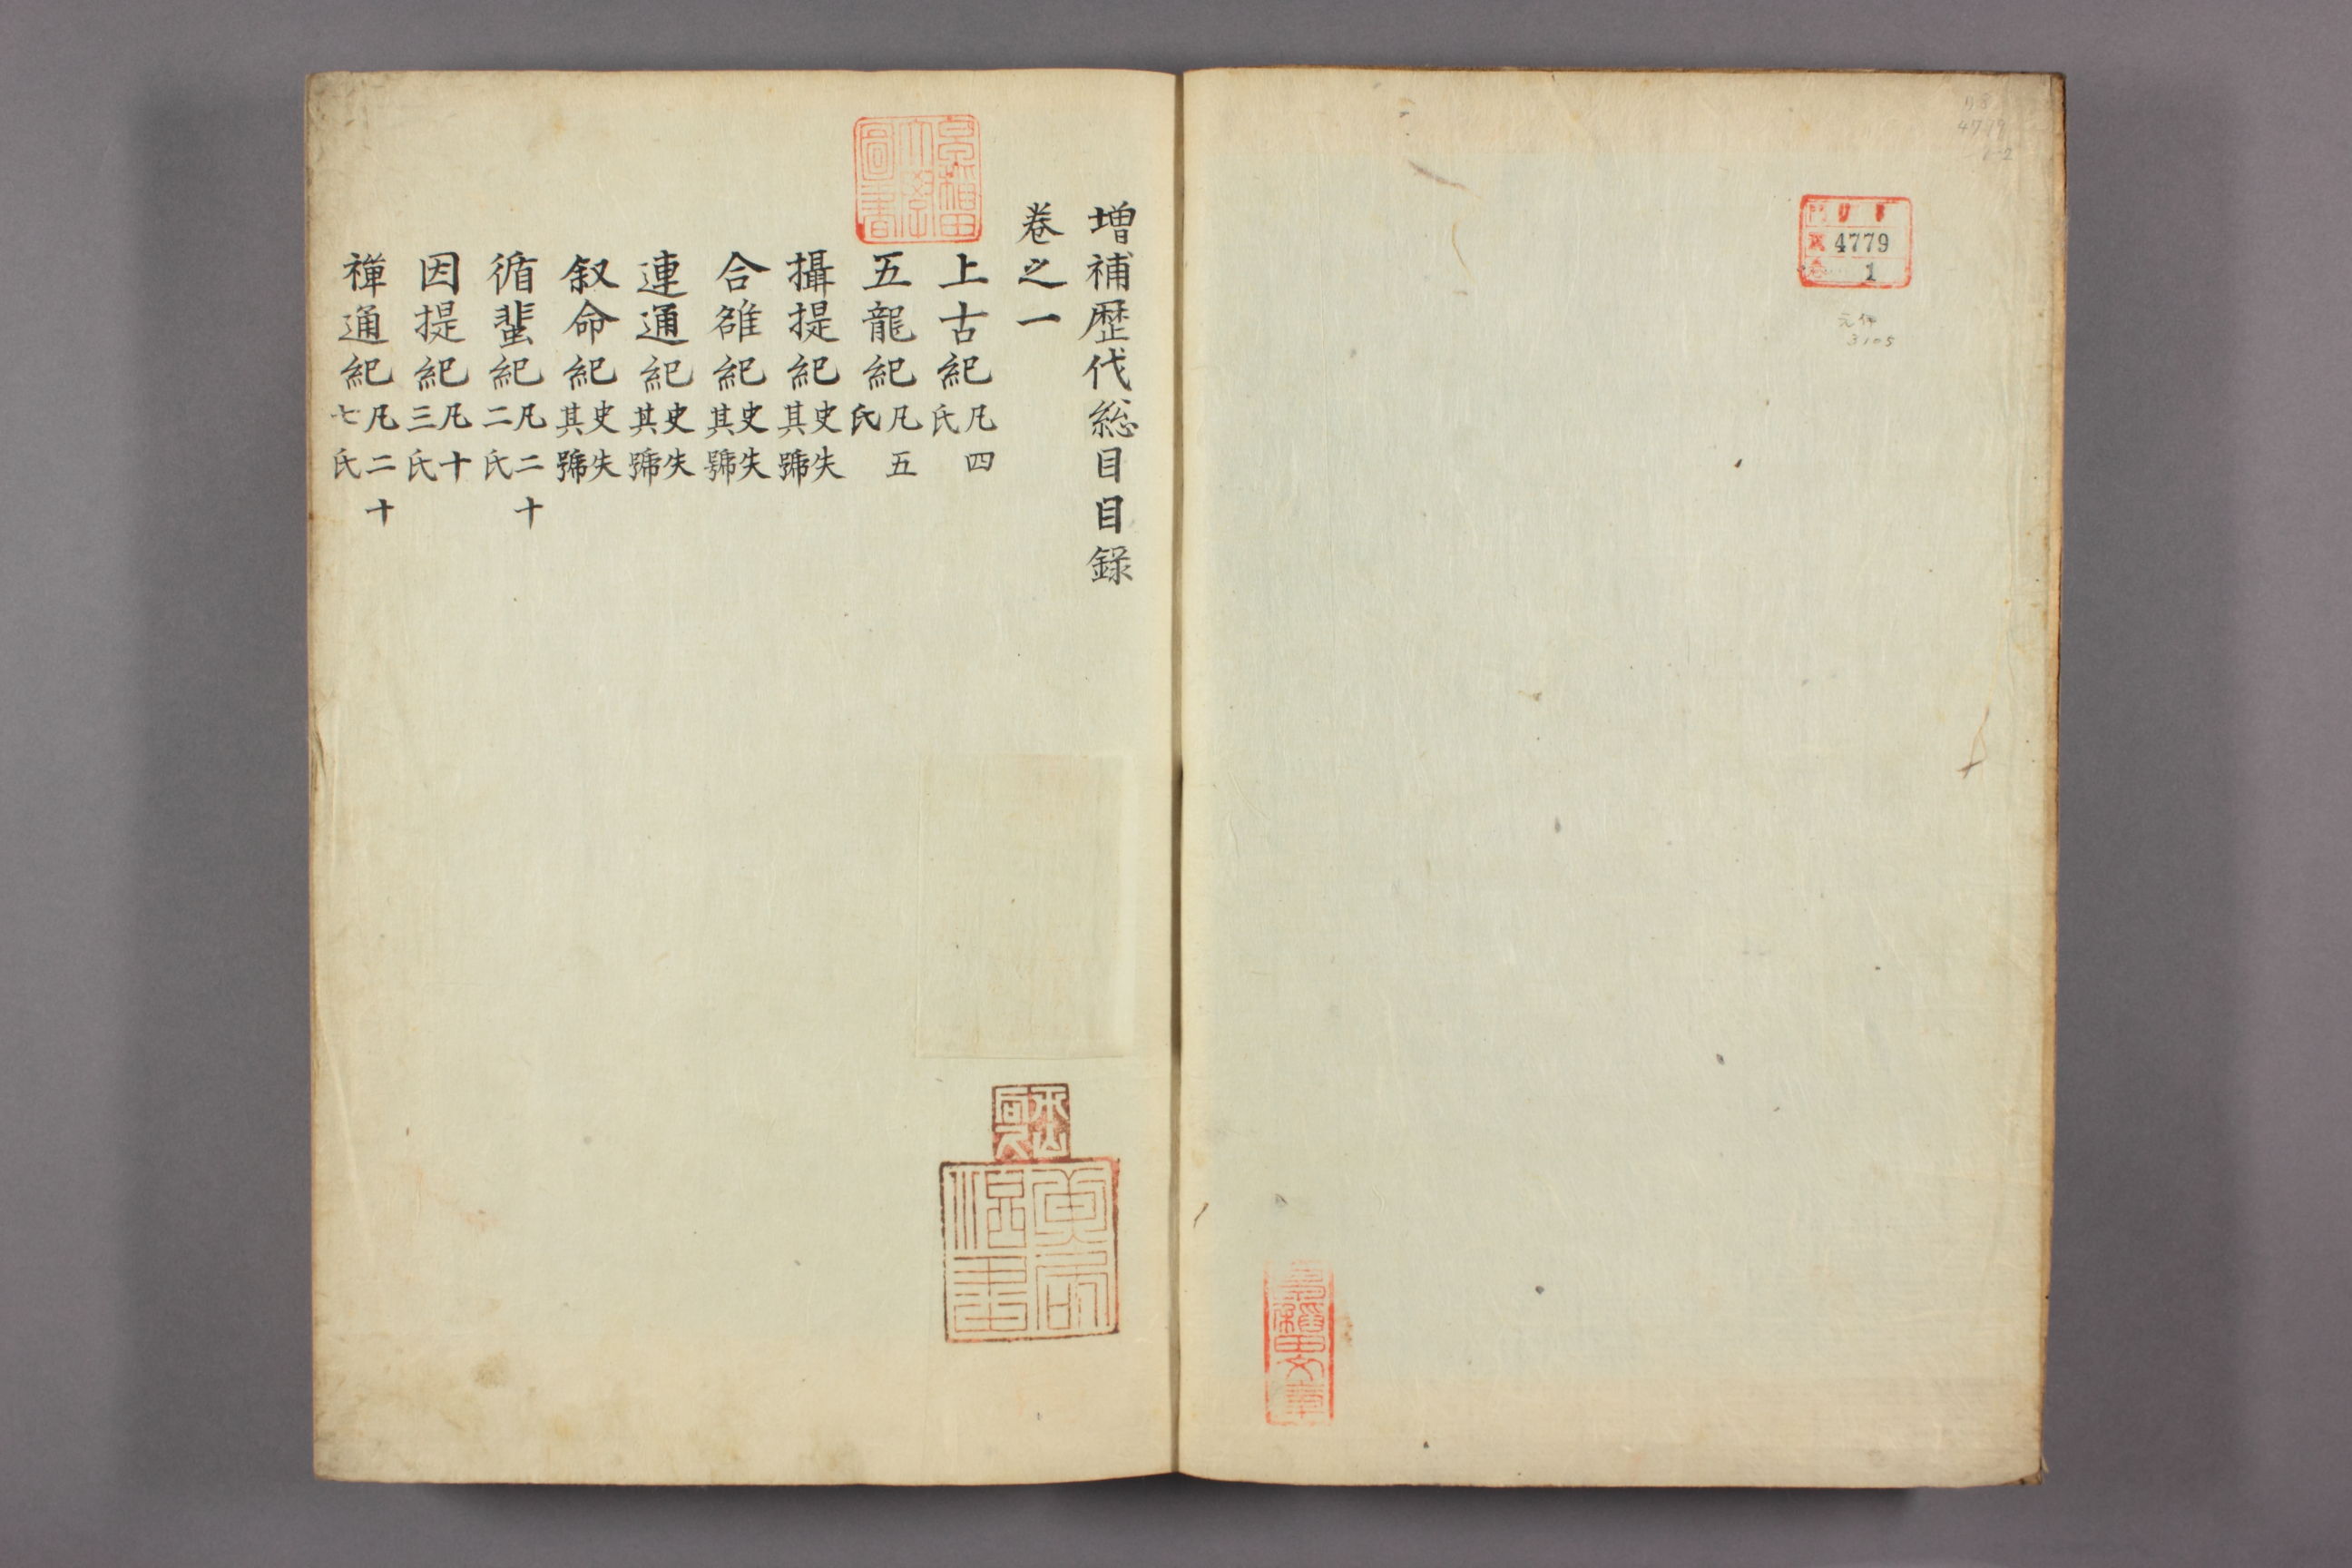 4779
1
元伊
3105
早稲田文庫
増補歴代総目目錄
卷之一
上古紀 凡四氏
五龍紀 凡五氏
攝提紀 史失其號
合雒紀 史失其號
連通紀 史失其號
叙命紀 史失其號
循蜚紀 凡二十二氏
因提紀 凡十三氏
禪通紀 凡二十七氏